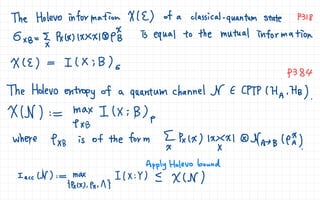 The Holevo information χ(ε) of a classical-quantum state P318
σ_XB = Σ_x P_X(x) |x><x| ⊗ ρ_B^x is equal to the mutual information
χ(ε) = I(X;B)_σ
P384
The Holevo entropy of a quantum channel N ∈ CPTP(H_A, H_B).
χ(N) := max_{ρ_XB} I(X;B)_ρ
where ρ_XB is of the form Σ_x P_X(x) |x><x| ⊗ N_{A→B}(ρ_A^x)
Apply Holevo bound
I_acc(N) := max_{{P_X(x), ρ_x, Λ}} I(X:Y) ≤ χ(N)